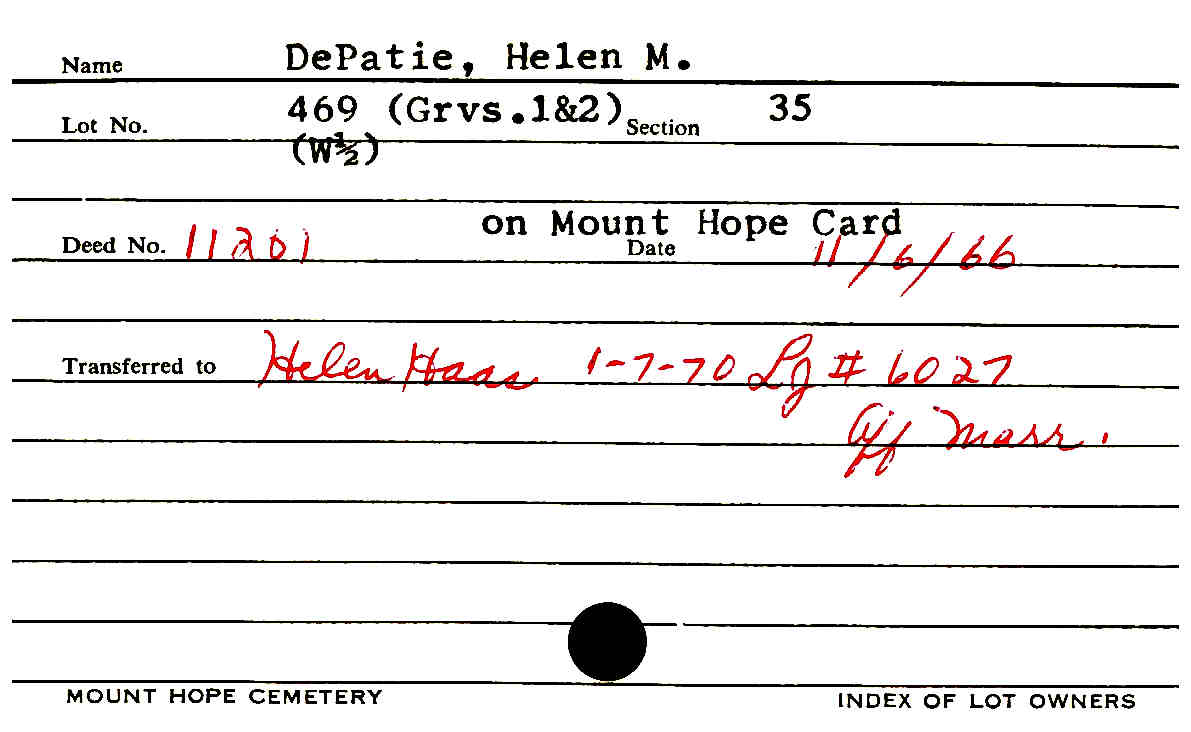 Name DePatie, Helen M.
Lot No. 469 (Grvs.1&2) Section 35
(W½)
on Mount Hope Card
Deed No. 11201 Date 11/6/66
Transferred to Helen Haas 1-7-70 Lg # 6027
Aff Marr.
MOUNT HOPE CEMETERY INDEX OF LOT OWNERS